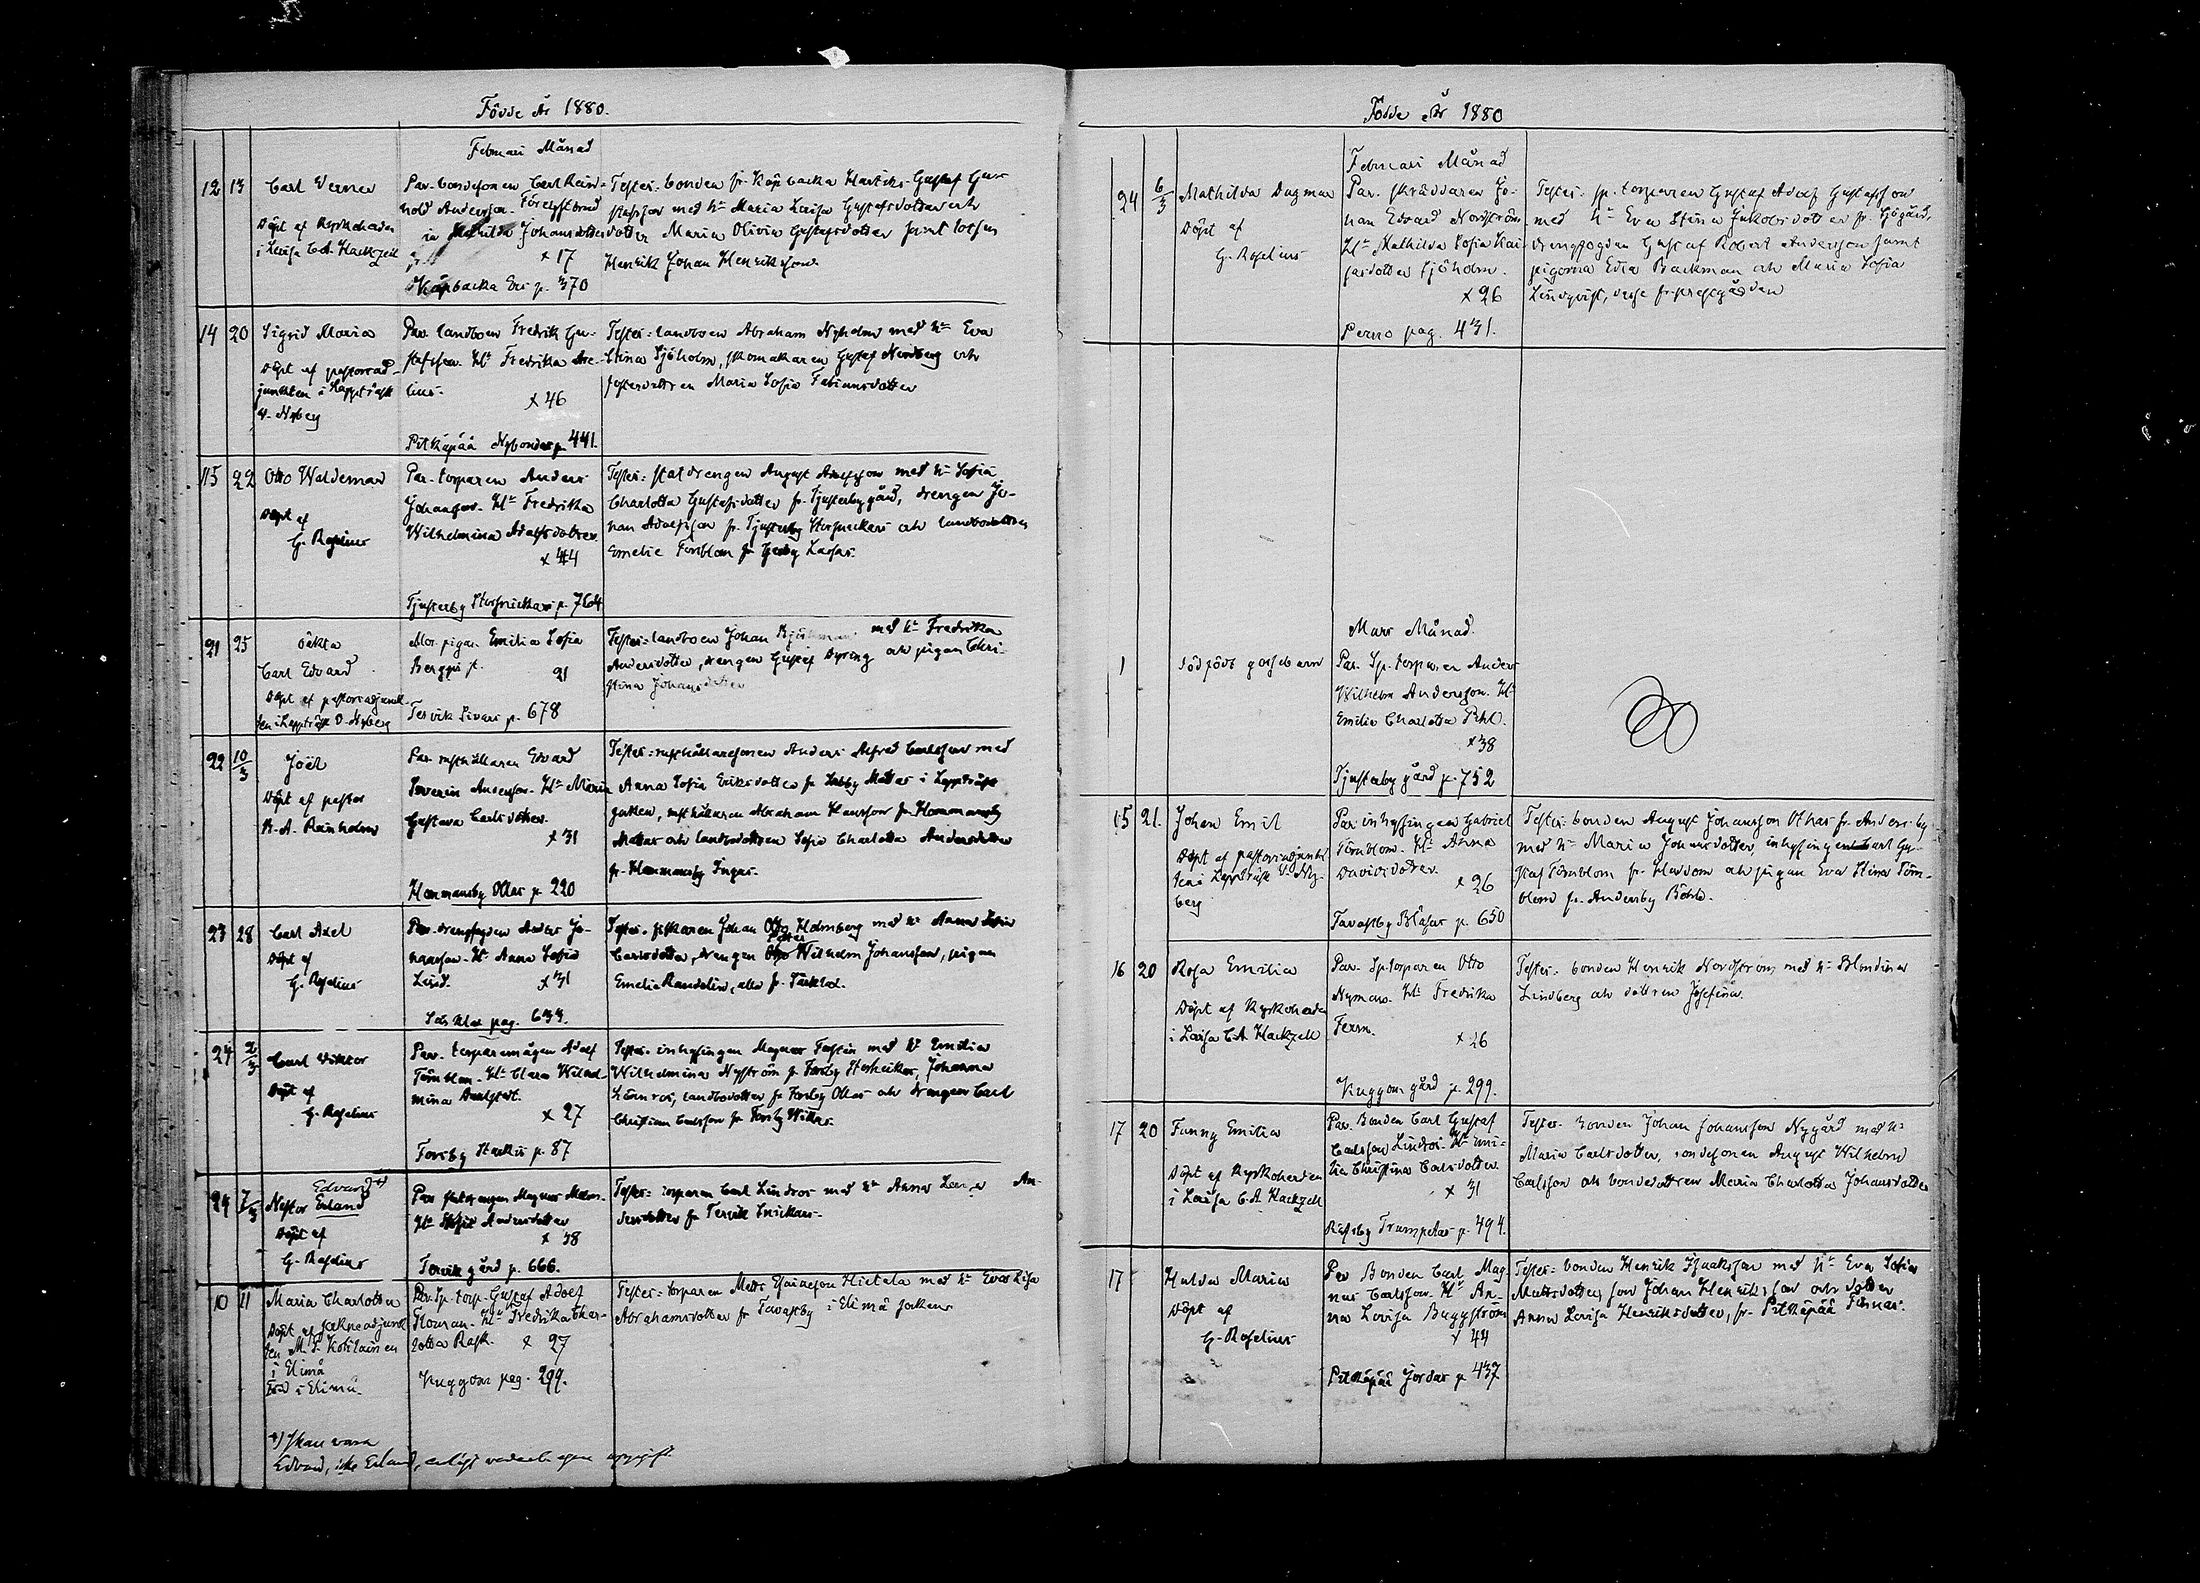 Födde År 1880.
Februari Månad
12 13 Carl Verner
Döpt af Kyrkoherden
i Lovisa C. A. Hackzell
Par. bondesonen Carl Rein-
hold Andersson. Förelofstbrud
Mathilda Johansdotter
x 17
Käpbacka Eri p. 370
Tester: bonden fr. Käpbacka Gustaf Gu-
stafsson med h:u Maria Lovisa Gustafsdotter och
dotter Maria Olivia Gustafsdotter samt lotsen
Henrik Johan Henriksson
14 20 Sigrid Maria
Döpt af pastorsad-
junkten i Lappträsk
V. Nyberg
Par. landboen Fredrik Gu-
stafsson. H:u Fredrika
x 46
Pitkäpää Nybondas p. 441.
Tester: landboen Abraham Nyholm med h:u Eva
Stina Sjöholm, skomakaren Gustaf Nordberg och
Maria Sofia Fabiansdotter
15 22 Otto Waldemar
Döpt af
G. Roselius
Par. torparen Anders
Johansson. H:u Fredrika
Wilhelmina Adolfsdotter
x 44
Tjusterby Storsnickars p. 764
Tester: statdrengen August Adolfsson med h:u Sofia
Charlotta Gustafsdotter fr. Tjusterby gård, drengen Jo-
han Adolfsson fr. Tjusterby Storsnickars och landbodottren
Emelie Törnblom fr.
21 25 oäkta
Carl Edvard
Döpt af pastorsadjunk-
ten i Lappträsk V. Nyberg
Mor. pigan Emilia Sofia
Bergqvist
21
Tervik Sivars p. 678
Tester: landboen Johan med h:u Fredrika
Andersdotter, drengen Gustaf Dyring och pigan Chri-
stina Johansdotter
22 10/3 Joël
Döpt af pastor
K. A. Reinholm
Par. rusthållaren Edvard
Severin Andersson. H:u Maria
Gustava Carlsdotter
x 31
Hommansby Ollas p. 220
Tester: rusthållaresonen Anders Alfred Carlsson med
Anna Sofia Eriksdotter fr. Mattas i Lappträsk
socken, rusthållaren Abraham Hansson fr. Hommansby
Mattas och landbodottren Sofia Charlotta Andersdotter
fr. Hommansby Ingas.
23 28 Carl Axel
Döpt af
G. Roselius
Par. drengfogden Anders Jo-
hansson. H:u Anna Sofia
Lind. x 31
Särklax pag. 633
Tester. fiskaren Johan Otto Holmberg med h:u Anna Sofia
Carlsdotter, drengen Otto Wilhelm Johansson, pigan
Emelie Randelin, alla fr. Särklax.
24 2/3 Carl Viktor
Döpt af
G. Roselius
Par. torparemågen Adolf
Törnblom. H:u Clara Wilhel-
mina
x 27
Forsby Starkis p. 87
Tester. inhysingen Magnus Fastin med h:u Emilia
Wilhelmina Nyström fr. Forsby, Johanna
Lönnros, landbodotter fr. Forsby Ollas och drengen Carl
Christian Carlsson fr. Forsby Willas.
24 7/3 Edvard +)
Nestor Erland
Döpt af
G. Roselius
Par. statdrengen Magnus Malm.
H:u Sofia Andersdotter
x 38
Tervik gård p. 666.
Tester: torparen Carl Lindros med h:u Anna Lovisa An-
dersdotter fr. Tervik Snickars.
10 11 Maria Charlotta
Döpt af sockneadjunk-
ten M. F. Kotilainen
i Elimä
Född i Elimä
Par. Sp. torp. Gustaf Adolf
Floman. H:u Fredrika Char-
lotta Rask. x 27
Kuggom pag. 299.
Tester: torparen Matts Esaiasson Hietala med h:u Eva Lisa
Abrahamsdotter fr. Tavastby i Elimä socken
+) skall vara
Edvard, icke Erland, enligt vederbörligen uppgift.
Födde År 1880
Februari Månad
24 6/3 Mathilda Dagmar
Döpt af
G. Roselius
Par. skräddaren Jo-
han Edvard Nordström
H:u Mathilda Sofia Kai-
sasdotter Sjöholm.
x 26
Perno pag. 431.
Tester: sp. torparen Gustaf Adolf Gustafsson
med h:u Eva Stina Jakobsdotter fr. Sjögård,
drengfogden Gustaf Robert Andersson samt
pigorna Edla Backman och Maria Sofia
Lindqvist, desse fr. prestgården
Mars Månad.
1 dödfödt gossebarn
Par. Sp. torparen Anders
Wilhelm Andersson. H:u
Emilia Charlotta Pihl.
x 38
Tjusterby gård p. 752
15 21. Johan Emil
Döpt af pastorsadjunk-
ten i Lappträsk V. Ny-
berg
Par. inhysingen Gabriel
Törnblom. H:u Anna
Davidsdotter.
x 26
Tavastby Blåfas p. 650
Tester: bonden August Johansson Othas fr. Andersby
med h:u Maria Johansdotter, inhysingen Carl Gu-
staf Törnblom fr. Hardom och pigan Eva Stina Törn-
blom fr. Andersby Böhls.
16 20 Rosa Emilia
Döpt af Kyrkoherden
i Lovisa C. A. Hackzell
Par. Sp. torparen Otto
Nyman. H:u Fredrika
Ferm.
x 26
Kuggom gård p. 299.
Tester: bonden Henrik Nordström med h:u Blondina
Lindberg och dottren Josefina.
17 20 Fanny Emilia
Döpt af Kyrkoherden
i Lovisa C. A. Hackzell
Par. Bonden Carl Gustaf
Carlsson Lindros. H:u Emi-
lia Christina Carlsdotter
x 31
Räfsby Trumpetas p. 494.
Tester. Bonden Johan Johansson Nygård med h:u
Maria Carlsdotter, bondesonen August Wilhelm
Carlsson och bondedottren Maria Charlotta Johansdotter
17 Hulda Maria
Döpt af
G. Roselius
Par. Bonden Carl Mag-
nus Carlsson. H:u An-
na Lovisa Buggström
x 44
Pitkäpää Jordas p. 437
Tester: bonden Henrik Isaksson med h:u Eva Sofia
Mattsdotter, son Johan Henriksson och dotter
Anna Lovisa Henriksdotter, fr. Pitkäpää Finnas.